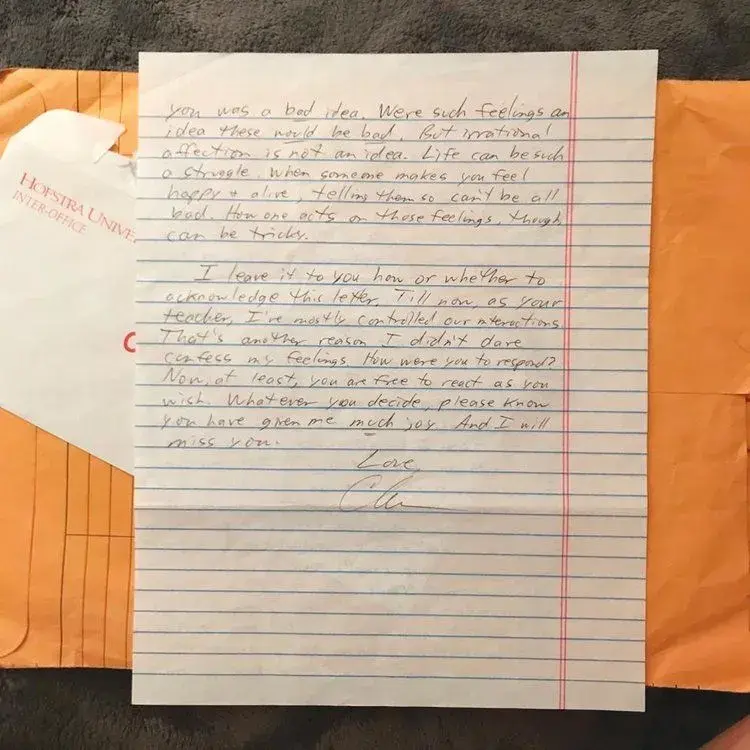 HOFSTRA UNIVE
INTER-OFFICE
you was a bad idea. Were such feelings an
idea these would be bad. But irrational
affection is not an idea. Life can be such
a struggle. When someone makes you feel
happy + alive, telling them so can't be all
bad. How one acts on those feelings, though,
can be tricky.
I leave it to you how or whether to
acknowledge this letter. Till now, as your
teacher, I've mostly controlled our interactions.
That's another reason I didn't dare
confess my feelings. How were you to respond?
Now, at least, you are free to react as you
wish. Whatever you decide, please know
you have given me much joy. And I will
miss you.
Love,